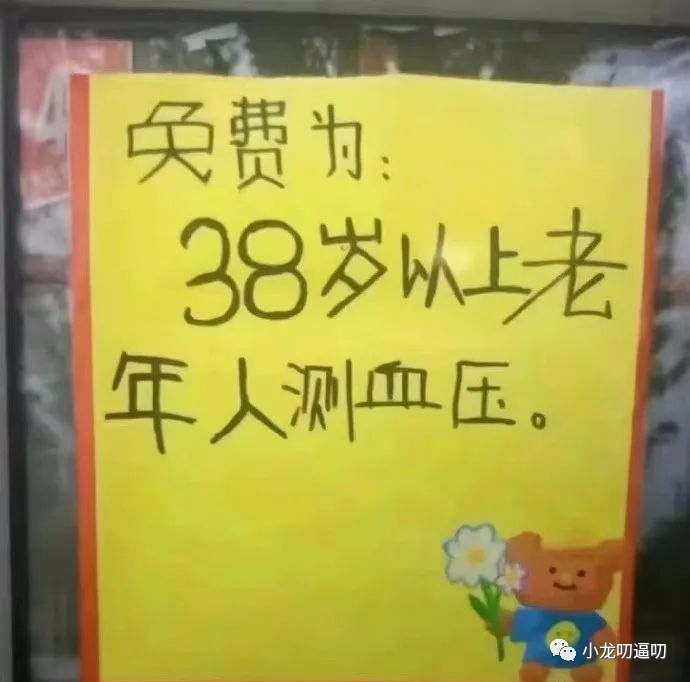 免费为:
38岁以上老
年人测血压。
小龙叨逼叨